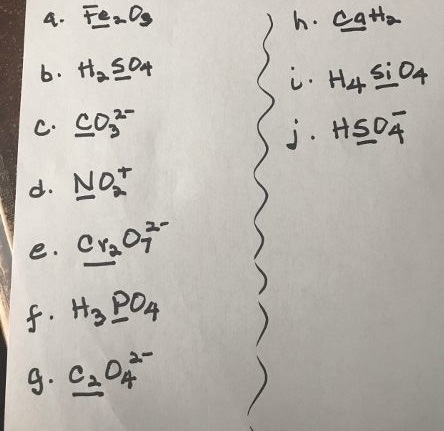 a. Fe₂O₃
b. H₂SO₄
c. CO₃²⁻
d. NO₂⁺
e. Cr₂O₇²⁻
f. H₃PO₄
g. C₂O₄²⁻
h. CaH₂
i. H₄SiO₄
j. HSO₄⁻